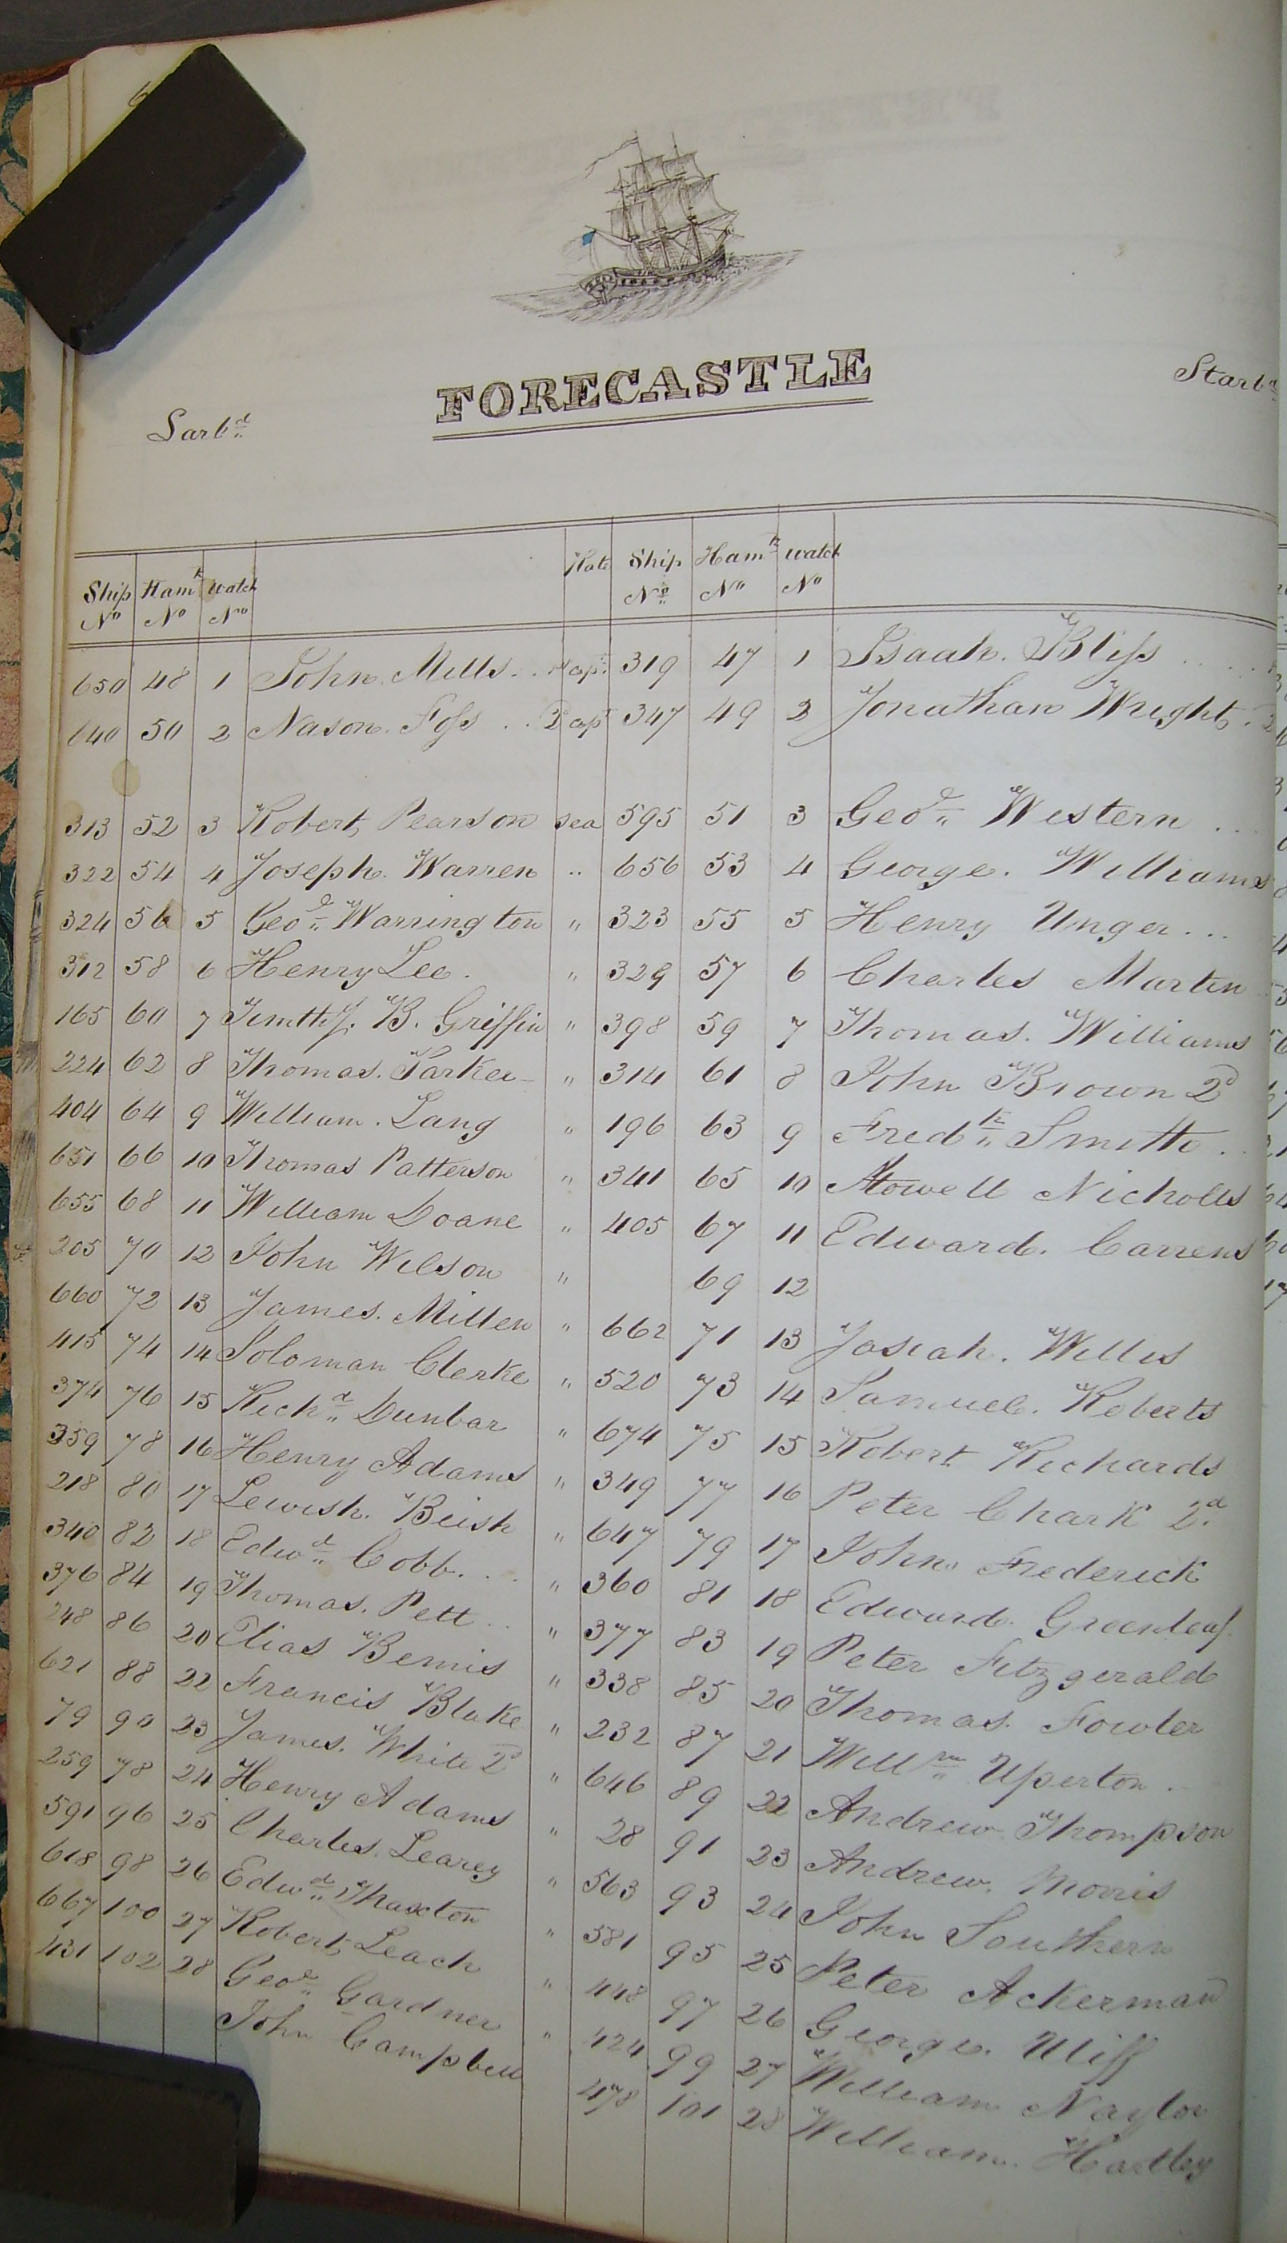 6
FORECASTLE
Larbd
Starbd
Ship No Hamk No Watch No Rate Ship No Hamk No Watch No
650 48 1 John Mills .. Cap. 319 47 1 Isaah. Bliss ....
640 50 2 Nason. Foss .. 2 Cap 347 49 2 Jonathan Wright. 2
313 52 3 Robert Pearson sea 595 51 3 Geoe Western ...
322 54 4 Joseph. Warren " 656 53 4 George. Williams
324 56 5 Geoe Warrington " 323 55 5 Henry Unger ...
312 58 6 Henry Lee. " 329 57 6 Charles Martin
165 60 7 Timthy. B. Griffin " 398 59 7 Thomas. Williams
224 62 8 Thomas. Parker " 314 61 8 John Brown 2d
404 64 9 William. Lang " 196 63 9 Fredk Smith ..
651 66 10 Thomas Patterson " 341 65 10 Nicholls
655 68 11 William Doane " 405 67 11 Edward. Carrens
205 70 12 John Wilson " 69 12
660 72 13 James. Millen " 662 71 13 Josiah. Willis
415 74 14 Soloman Clerke " 520 73 14 Samuel. Roberts
374 76 15 Richd Dunbar " 674 75 15 Robert Richards
359 78 16 Henry Adams " 349 77 16 Peter Chark 2d
218 80 17 Lewish. Beish " 647 79 17 John. Frederick
340 82 18 Edwd Cobb. .. " 360 81 18 Edward. Greenleaf
376 84 19 Thomas. Pett .. " 377 83 19 Peter Fitzgerald
248 86 20 Elias Bemis " 338 85 20 Thomas. Fowler
621 88 22 Francis Blake " 232 87 21 Willm Uperton.
79 90 23 James. White 2d " 646 89 22 Andrew Thompson
259 78 24 Henry Adams " 28 91 23 Andrew. Morris
591 96 25 Charles. Learey " 563 93 24 John Southern
618 98 26 Edwd Thaxton " 581 95 25 Peter Ackerman
667 100 27 Robert Leach " 448 97 26 George. Uliff
431 102 28 Geoe Gardner " 424 99 27 William Naylor
John Campbell 478 101 28 William. Hartley